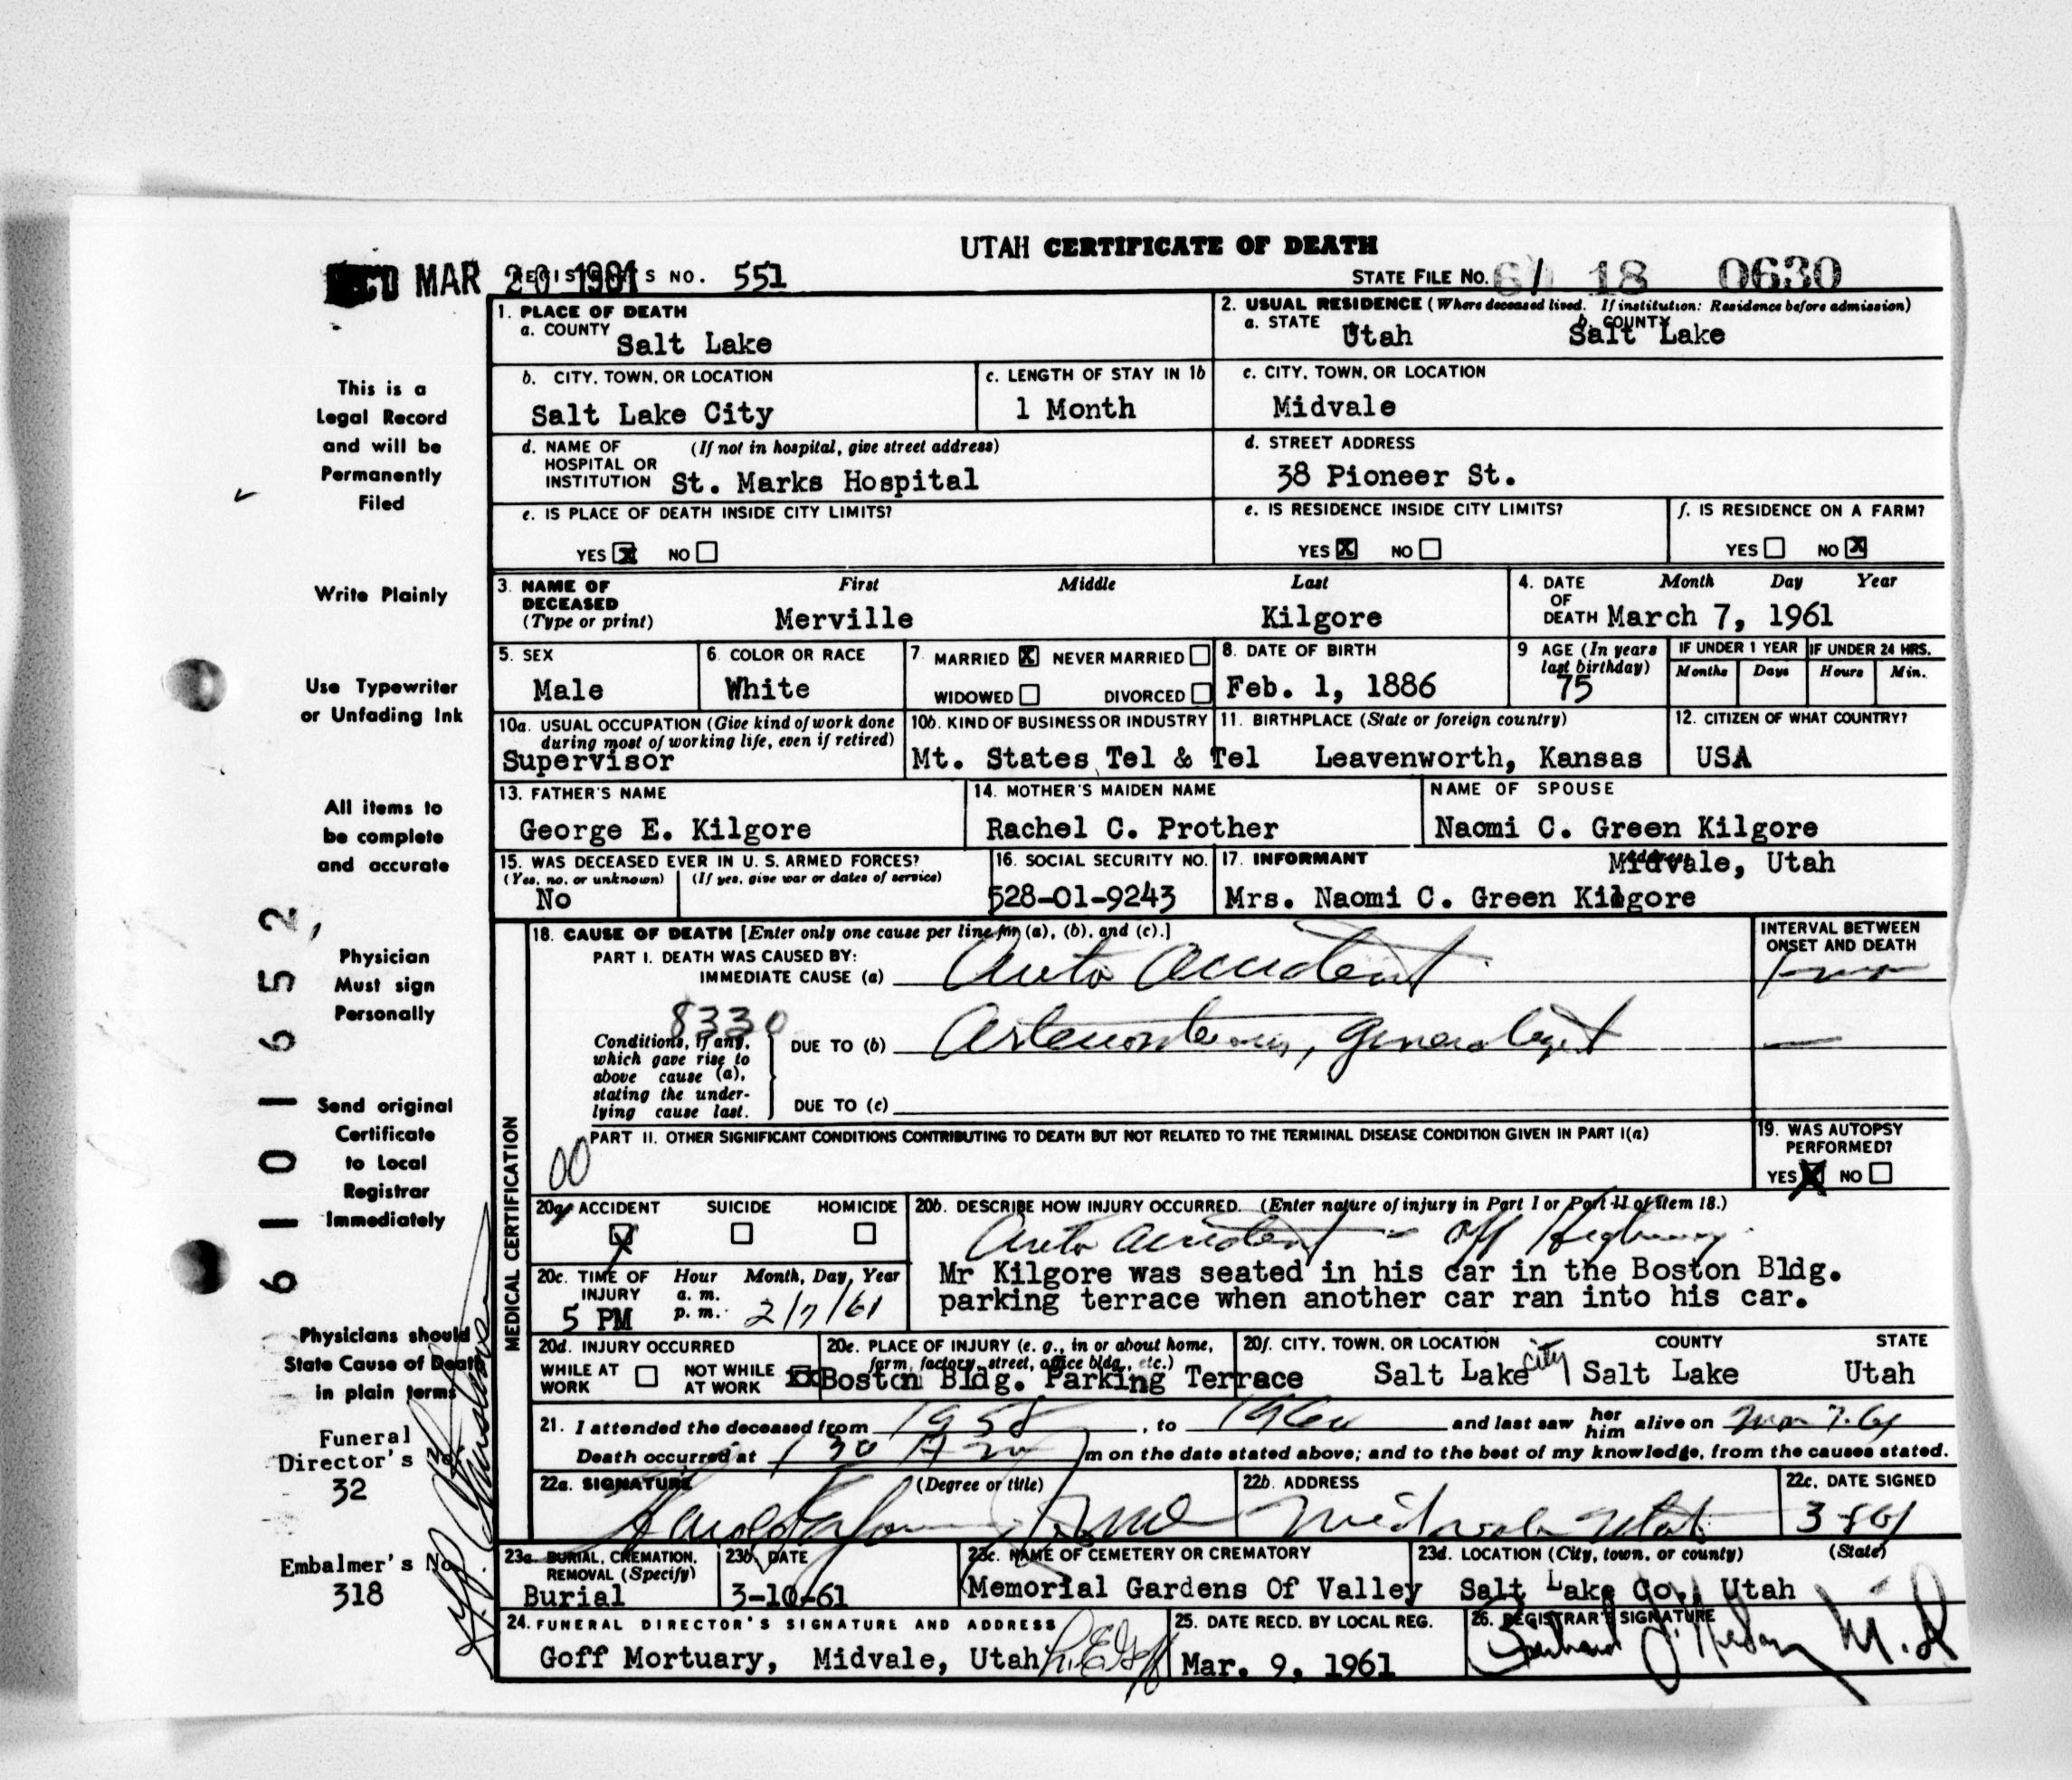 UTAH CERTIFICATE OF DEATH
REC'D MAR 20 1961 REGISTRAR'S NO. 551
STATE FILE NO. 61 18 0630
1. PLACE OF DEATH
a. COUNTY Salt Lake
2. USUAL RESIDENCE (Where deceased lived. If institution: Residence before admission)
a. STATE Utah b. COUNTY Salt Lake
b. CITY, TOWN, OR LOCATION
Salt Lake City
c. LENGTH OF STAY IN 1b
1 Month
c. CITY, TOWN, OR LOCATION
Midvale
d. NAME OF (If not in hospital, give street address)
HOSPITAL OR
INSTITUTION St. Marks Hospital
d. STREET ADDRESS
38 Pioneer St.
e. IS PLACE OF DEATH INSIDE CITY LIMITS?
YES X NO
e. IS RESIDENCE INSIDE CITY LIMITS?
YES X NO
f. IS RESIDENCE ON A FARM?
YES NO X
3. NAME OF DECEASED (Type or print)
First Middle Last
Merville Kilgore
4. DATE OF DEATH Month Day Year
March 7, 1961
5. SEX
Male
6. COLOR OR RACE
White
7. MARRIED X NEVER MARRIED
WIDOWED DIVORCED
8. DATE OF BIRTH
Feb. 1, 1886
9 AGE (In years last birthday)
75
IF UNDER 1 YEAR IF UNDER 24 HRS.
Months Days Hours Min.
10a. USUAL OCCUPATION (Give kind of work done
during most of working life, even if retired)
Supervisor
10b. KIND OF BUSINESS OR INDUSTRY
Mt. States Tel & Tel
11. BIRTHPLACE (State or foreign country)
Leavenworth, Kansas
12. CITIZEN OF WHAT COUNTRY?
USA
13. FATHER'S NAME
George E. Kilgore
14. MOTHER'S MAIDEN NAME
Rachel C. Prother
NAME OF SPOUSE
Naomi C. Green Kilgore
15. WAS DECEASED EVER IN U. S. ARMED FORCES?
(Yes, no, or unknown) (If yes, give war or dates of service)
No
16. SOCIAL SECURITY NO.
528-01-9243
17. INFORMANT Address
Midvale, Utah
Mrs. Naomi C. Green Kilgore
MEDICAL CERTIFICATION
18. CAUSE OF DEATH [Enter only one cause per line for (a), (b), and (c).]
INTERVAL BETWEEN
ONSET AND DEATH
PART I. DEATH WAS CAUSED BY:
IMMEDIATE CAUSE (a) Auto Accident
8330
Conditions, if any,
which gave rise to
above cause (a),
stating the under-
lying cause last.
DUE TO (b)
DUE TO (c)
PART II. OTHER SIGNIFICANT CONDITIONS CONTRIBUTING TO DEATH BUT NOT RELATED TO THE TERMINAL DISEASE CONDITION GIVEN IN PART I(a)
00
19. WAS AUTOPSY
PERFORMED?
YES X NO
20a. ACCIDENT SUICIDE HOMICIDE
X
20b. DESCRIBE HOW INJURY OCCURRED. (Enter nature of injury in Part I or Part II of item 18.)
Auto accident - off Highway
Mr Kilgore was seated in his car in the Boston Bldg.
parking terrace when another car ran into his car.
20c. TIME OF INJURY Hour Month, Day, Year
a. m.
p. m.
5 PM 2/7/61
20d. INJURY OCCURRED
WHILE AT WORK NOT WHILE AT WORK XX
20e. PLACE OF INJURY (e. g., in or about home,
farm, factory, street, office bldg., etc.)
Boston Bldg. Parking Terrace
20f. CITY, TOWN, OR LOCATION COUNTY STATE
Salt Lake City Salt Lake Utah
21. I attended the deceased from 1958, to 1960 and last saw her him alive on Mar 7-61
Death occurred at 1 30 A m m on the date stated above; and to the best of my knowledge, from the causes stated.
22a. SIGNATURE (Degree or title)
22b. ADDRESS
Midvale Utah
22c. DATE SIGNED
3-8-61
23a. BURIAL, CREMATION,
REMOVAL (Specify)
Burial
23b. DATE
3-10-61
23c. NAME OF CEMETERY OR CREMATORY
Memorial Gardens Of Valley
23d. LOCATION (City, town, or county) (State)
Salt Lake Co., Utah
24. FUNERAL DIRECTOR'S SIGNATURE AND ADDRESS
Goff Mortuary, Midvale, Utah
25. DATE RECD. BY LOCAL REG.
Mar. 9, 1961
26. REGISTRAR'S SIGNATURE
M.D
This is a
Legal Record
and will be
Permanently
Filed
Write Plainly
Use Typewriter
or Unfading Ink
All items to
be complete
and accurate
Physician
Must sign
Personally
Send original
Certificate
to Local
Registrar
Immediately
Physicians should
State Cause of Death
in plain terms
Funeral
Director's No.
32
Embalmer's No.
318
6 1 0 1 6 5 2